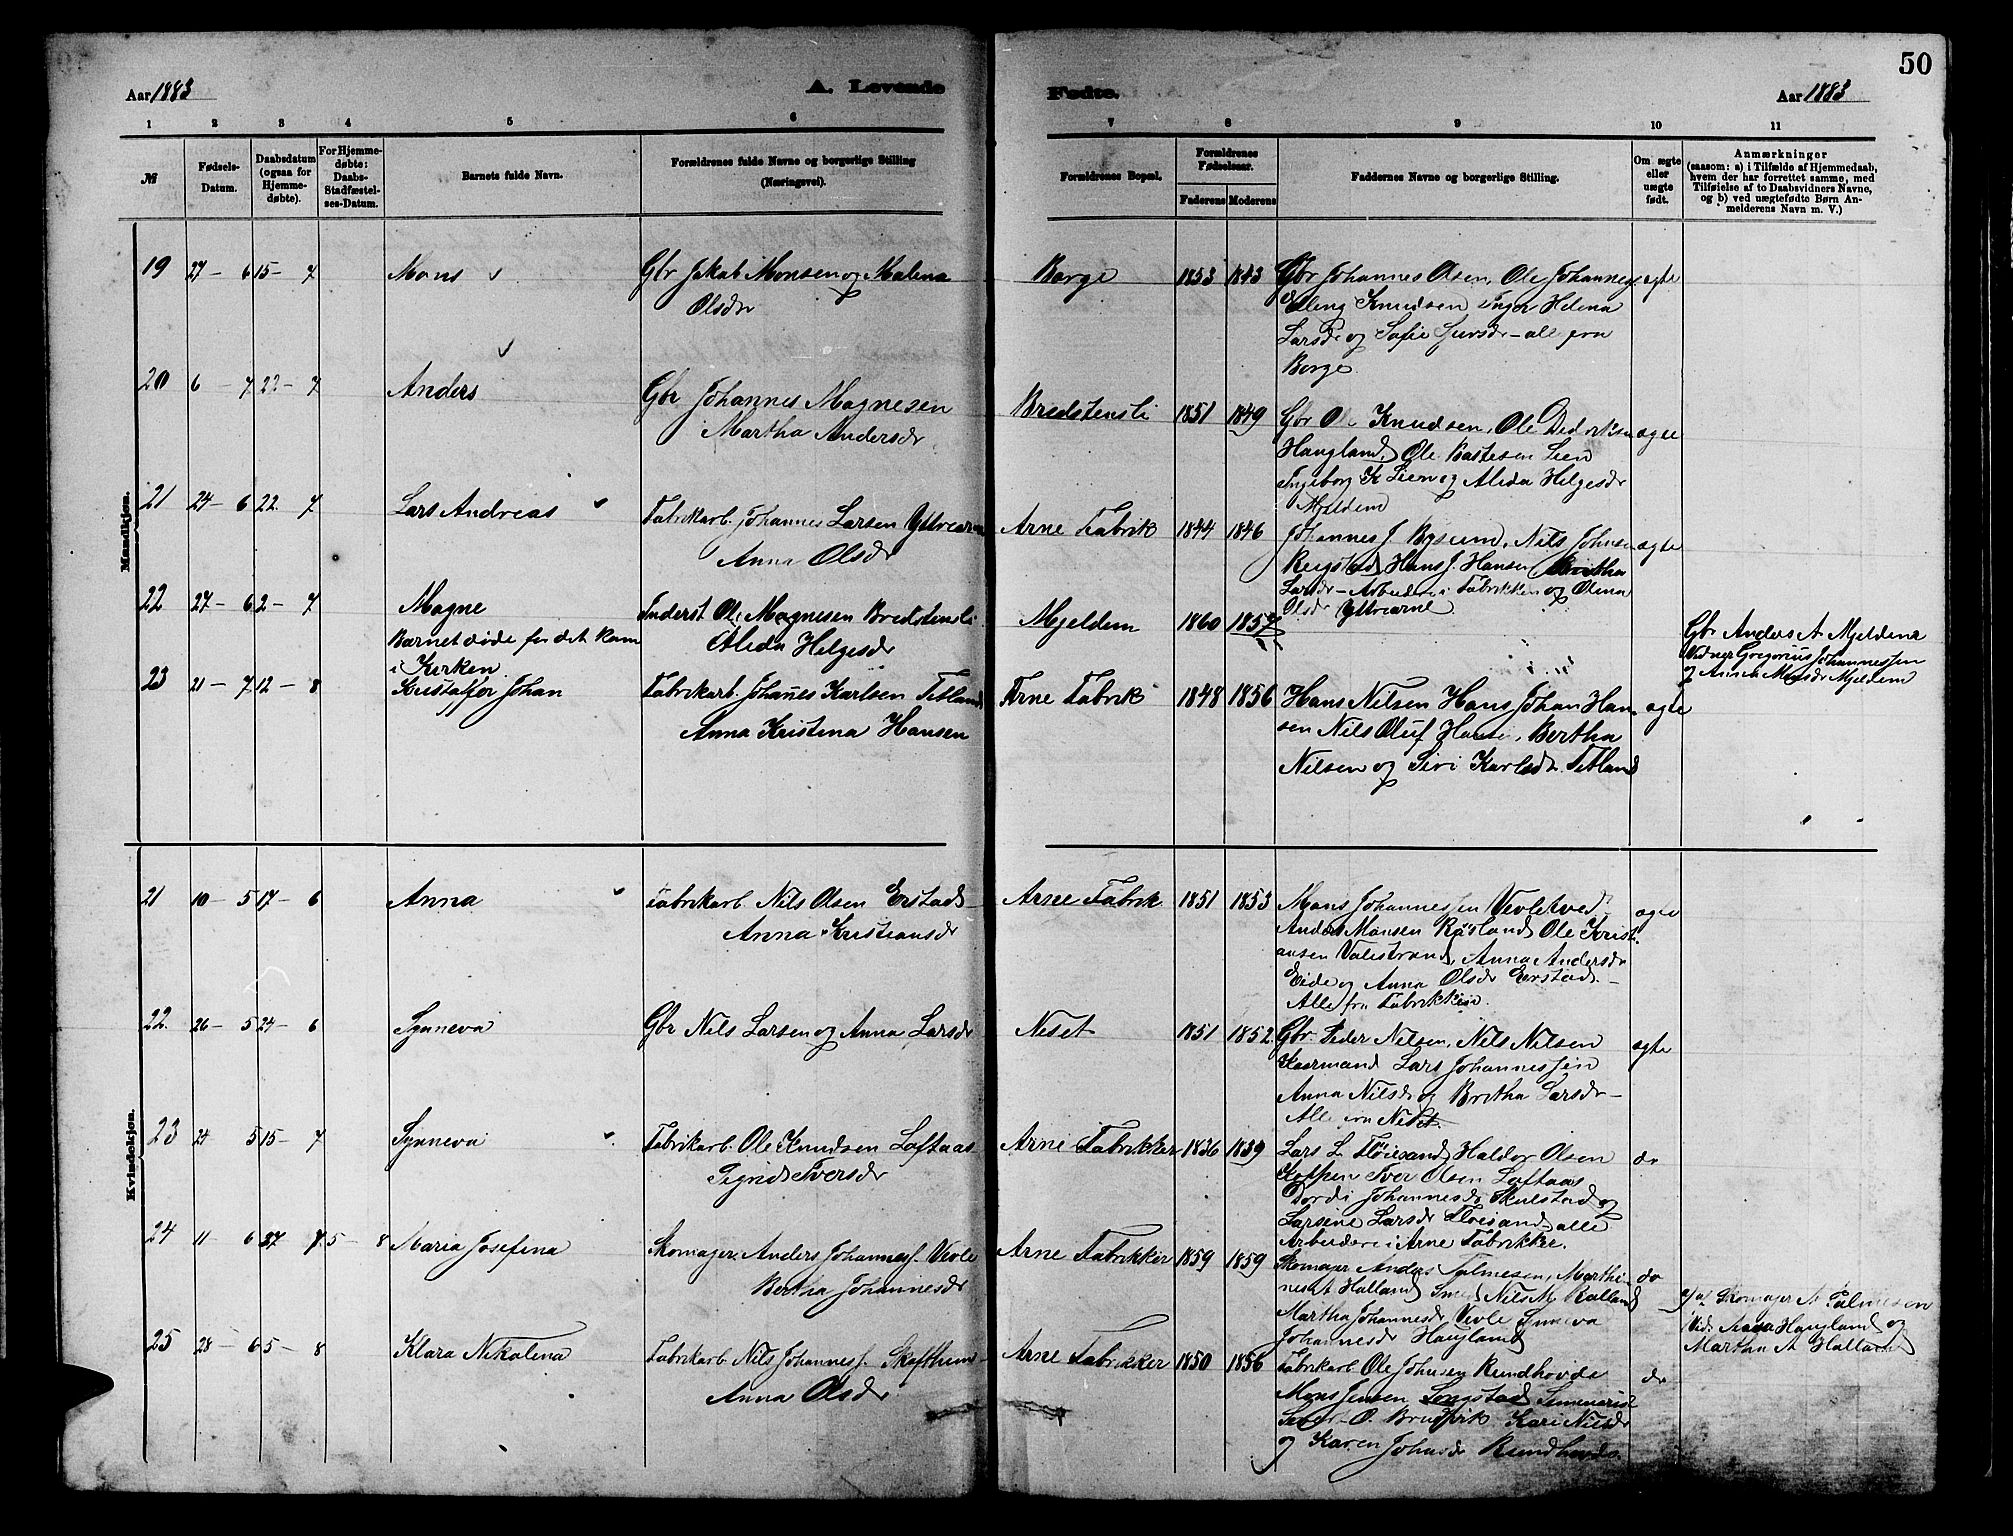 50
Aar 1883
A. Levende
Fødte.
Aar 1883
1 2 3 4 5 6 7 8 9 10 11
№
Fødsels-
Datum.
Daabsdatum
(ogsaa for
Hjemme-
døbte).
For Hjemme-
døbte:
Daabs-
Stadfæstel-
ses-Datum.
Barnets fulde Navn.
Forældrenes fulde Navne og borgerlige Stilling
(Næringsvei).
Forældrenes Bopæl.
Forældrenes
Fødselsaar.
Faderens Moderens
Faddernes Navne og borgerlige Stilling.
Om ægte
eller
uægte
født.
Anmærkninger
(saasom: a) i Tilfælde af Hjemmedaab,
hvem der har forrettet samme, med
Tilføielse af to Daabsvidners Navne,
og b) ved uægtefødte Børn An-
melderens Navn m. V.)
Mandkjøn.
19 27 - 6 15 - 7 Mons
Gbr Jakob Monsen og Malena
Olsdr
Borge 1853 1843
Gbr Johannes Olsen, Ole Johannes.
Knudsen Inger Helena
Larsdr og Sofie Sjursdr - alle fra
Borge
ægte
20 6 - 7 22 - 7 Anders
Gbr Johannes Magnesen
Martha Andersdr
Bredstensli 1851 1849
Gbr Knudsen, Ole Dedriksen
Haugland, Ole Bastesen Lien
Ingeborg K Lien og Alida Helgesdr
Mjeldem
ægte
21 24 - 6 22 7 Lars Andreas
Fabrikarb. Johannes Larsen Yttrearne
Anna Olsdr
Arne Fabrik 1844 1846
Johannes J. Nils Johnsen
Hans J. Hansen, Britha
Larsdr - Arbeidere i Fabrikken og Olena
Olsdr Yttrearne
ægte
22 27 - 6 2 - 7 Magne
Barnet døde før det kom
i Kirken
Inderst Ole Magnesen Bredstensli
Alida Helgesdr
Mjeldem 1860 1857
Gbr Anders A. Mjeldem
Vidner Gregorius Johannessen
og Anna Monsdr Mjeldem
23 21 - 7 12 - 8 Kristoffer Johan
Fabrikarb. Johanes Karlsen Tetland
Anna Kristina Hansen
Arne Fabrik 1848 1856
Hans Nilsen Hans Johan Han-
sen Nils Oluf Bertha
Nilsen og Siri Karlsdr. Tetland
ægte
Kvindekjøn.
21 10 - 5 17 - 6 Anna
Fabrikarb. Nils Olsen Erstad
Anna Kristiansdr
Arne Fabrik 1851 1853
Mons Johannessen Vevletved
Anders Monsen Røsland Ole Krist-
iansen Valestrand, Anna Andersdr
Eide og Anna Olsdr Erstad. -
Alle fra Fabrikken.
ægte
22. 26 - 5 24 - 6 Synneva
Gbr Nils Larsen og Anna Larsdr
Neset 1851 1852.
Gbr. Peder Nilsen, Nils Nilsen
Kaarmand Lars Johannessen
Anna Nilsdr og Britha Larsdr -
Alle fra Neset.
ægte
23 24 5 15 - 7 Synneva
Fabrikarb. Ole Knudsen Loftaas
Sigrid Iversdr
Arne Fabrikker 1836 1839
Lars L. Fløiesand, Haldor Olsen
Iver Olsen Loftaas
Dordi Johannesdr Skulstad og
Larsine Larsdr Fløiesand, alle
Arbeidere i Arne Fabrikker.
do
24 11 - 6 7 5 - 8 Maria Josefina
Skomager Anders Johannes. Vevle
Bertha Johannesdr
Arne Fabrikker 1859 1859
Skomager Anders Palmesen, Marthi-
nes A Halland Smed Nils M
Martha Johannesdr Vevle Synneva
Johannesdr Haugland
do
Skomager A Palmesen
Vid: Haugland og
Martha A Halland
25 28 - 6 5 - 8 Klara Nikolena
Fabrikarb Nils Johannes. Skafthun
Anna Olsdr
Arne Fabrikker 1850 1856
Fabrikarb Ole Johnsen Rundhovde
Mons Jensen Songstad Seminarist
O. Brudvik Kari Nilsdr
og Karen Johnsdr Rundhovde
do